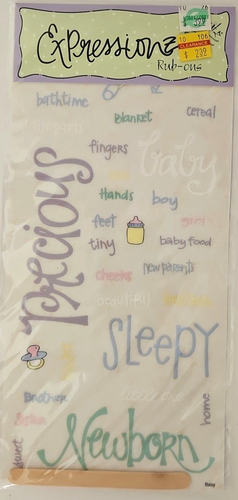 Expressionz
Rub-ons
10 106
CLEARANCE
bathtime
Blanket
cereal
fingers
baby
precious
Hands
boy
feet
tiny
baby food
new parents
cheeks
beautiful
SLEEPY
Brother
home
sweet
Newborn
Baby